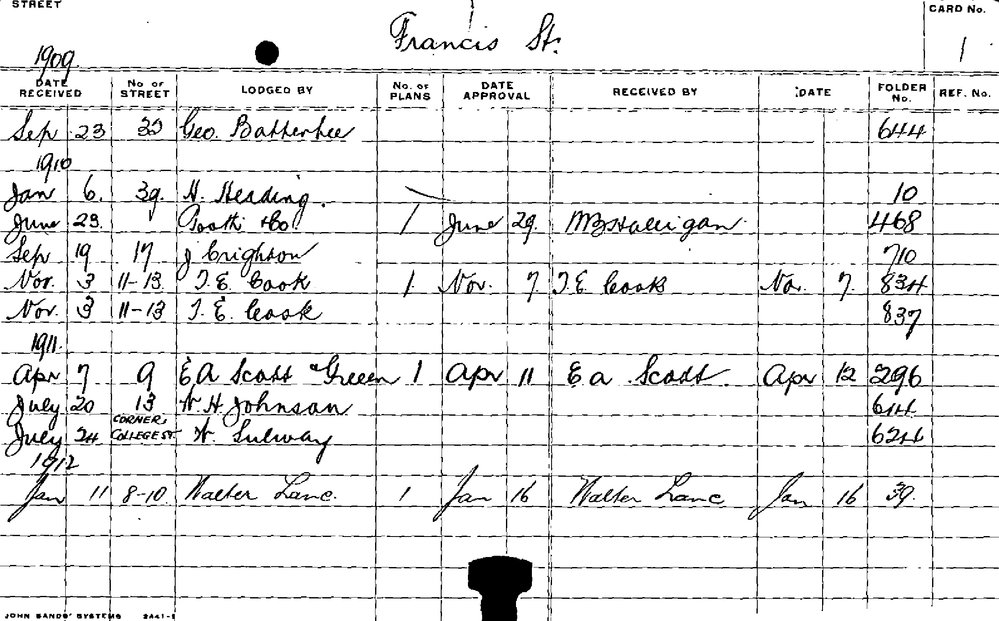 STREET
Francis St.
CARD No.
1
1909
DATE RECEIVED No OF STREET LODGED BY No. OF PLANS DATE APPROVAL RECEIVED BY DATE FOLDER No. REF. No.
Sep 23 Geo. Batterbee 644
1910
Jan 6. 39. H. Herding. 10
June 23. Tooth & Co. 1 June 29. Halligan 468
Sep 19 17 J Crighton 710
Nov. 3 11-13. T. E. Cook 1 Nov. 7 T. E. Cook No. 7. 834
Nov. 3 11-13 T. E. Cook 837
1911.
Apr 7 9 E A Scott & Green 1 Apr 11 E a Scott Apr 12 296
July 20 13 W. H. Johnson 614
July 24 CORNER COLLEGE ST W. Sulway 624
1912
Jan 11 8-10. Walter Lane. 1 Jan 16 Walter Lane Jan 16 39.
JOHN SANDS' SYSTEMS